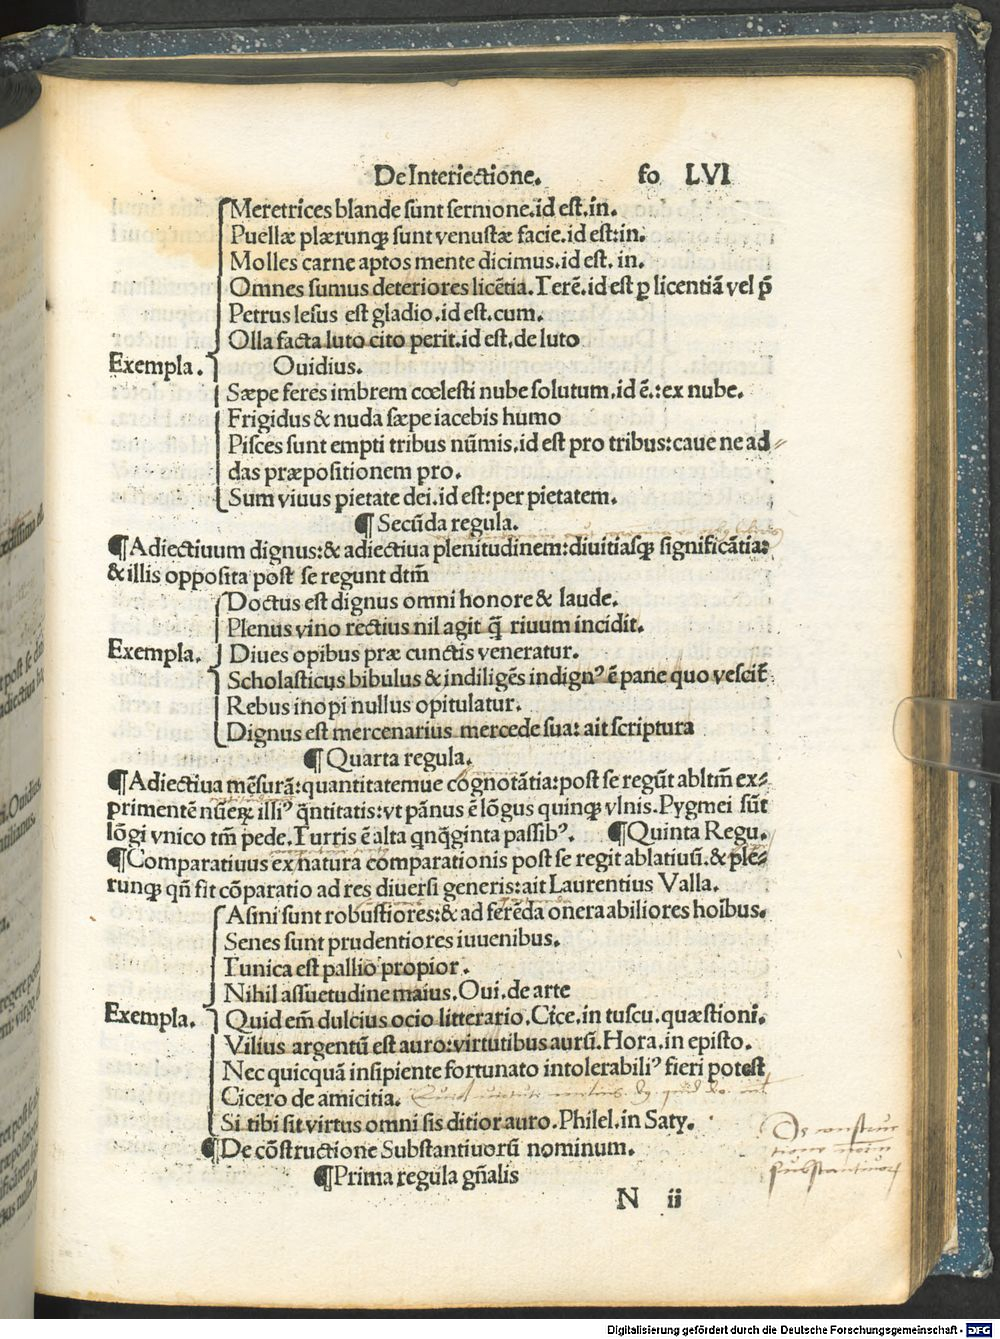 De Interiectione. fo LVI
Meretrices blande sunt sermone.id est.in.
Puellæ plærunqꝫ sunt venustæ facie.id est:in.
Molles carne aptos mente dicimus.id est. in.
Omnes sumus deteriores licẽtia.Terẽ.id est ꝑ licentiã vel p̃
Petrus lesus est gladio.id est.cum.
Olla facta luto cito perit.id est.de luto
Exempla. Ouidius.
Sæpe feres imbrem cœlesti nube solutum.id ẽ.:ex nube.
Frigidus & nuda sæpe iacebis humo
Pisces sunt empti tribus nũmis.id est pro tribus:caue ne ad⸗
das præpositionem pro.
Sum viuus pietate dei.id est:per pietatem.
¶ Secũda regula.
¶Adiectiuum dignus:& adiectiua plenitudinem:diuitiasqꝫ significãtia:
& illis opposita post se regunt dtm̃
Doctus est dignus omni honore & laude.
Plenus vino rectius nil agit q̃ riuum incidit.
Exempla. Diues opibus præ cunctis veneratur.
Scholasticus bibulus & indiligẽs indignꝰ ẽ pane quo vescit̃
Rebus inopi nullus opitulatur.
Dignus est mercenarius mercede sua: ait scriptura
¶ Quarta regula.
¶Adiectiua mẽsurã:quantitatemue cognotãtia:post se regũt abltm̃ ex⸗
primentẽ nũeꝝ illiꝰ q̃ntitatis:vt pãnus ẽ lõgus quinqꝫ vlnis.Pygmei sũt
lõgi vnico tm̃ pede.Turris ẽ alta qnq̃ginta passibꝰ. ¶Quinta Regu.
¶Comparatiuus ex natura comparationis post se regit ablatiuũ.& ple⸗
runqꝫ qñ fit cõparatio ad res diuersi generis:ait Laurentius Valla.
Asini sunt robustiores:& ad ferẽda onera abiliores hoĩbus.
Senes sunt prudentiores iuuenibus.
Tunica est pallio propior.
Nihil assuetudine maius.Oui.de arte
Exempla. Quid em̃ dulcius ocio litterario.Cice.in tuscu.quæstioni.
Vilius argentũ est auro:virtutibus aurũ.Hora.in episto.
Nec quicquã insipiente fortunato intolerabiliꝰ fieri potest
Cicero de amicitia.
Si tibi sit virtus omni sis ditior auro.Philel.in Saty.
¶De cõstructione Substantiuorũ nominum.
De construc
tione noĩm
substantiuorꝫ
¶Prima regula gñalis
N ii
Digitalisierung gefördert durch die Deutsche Forschungsgemeinschaft - DFG